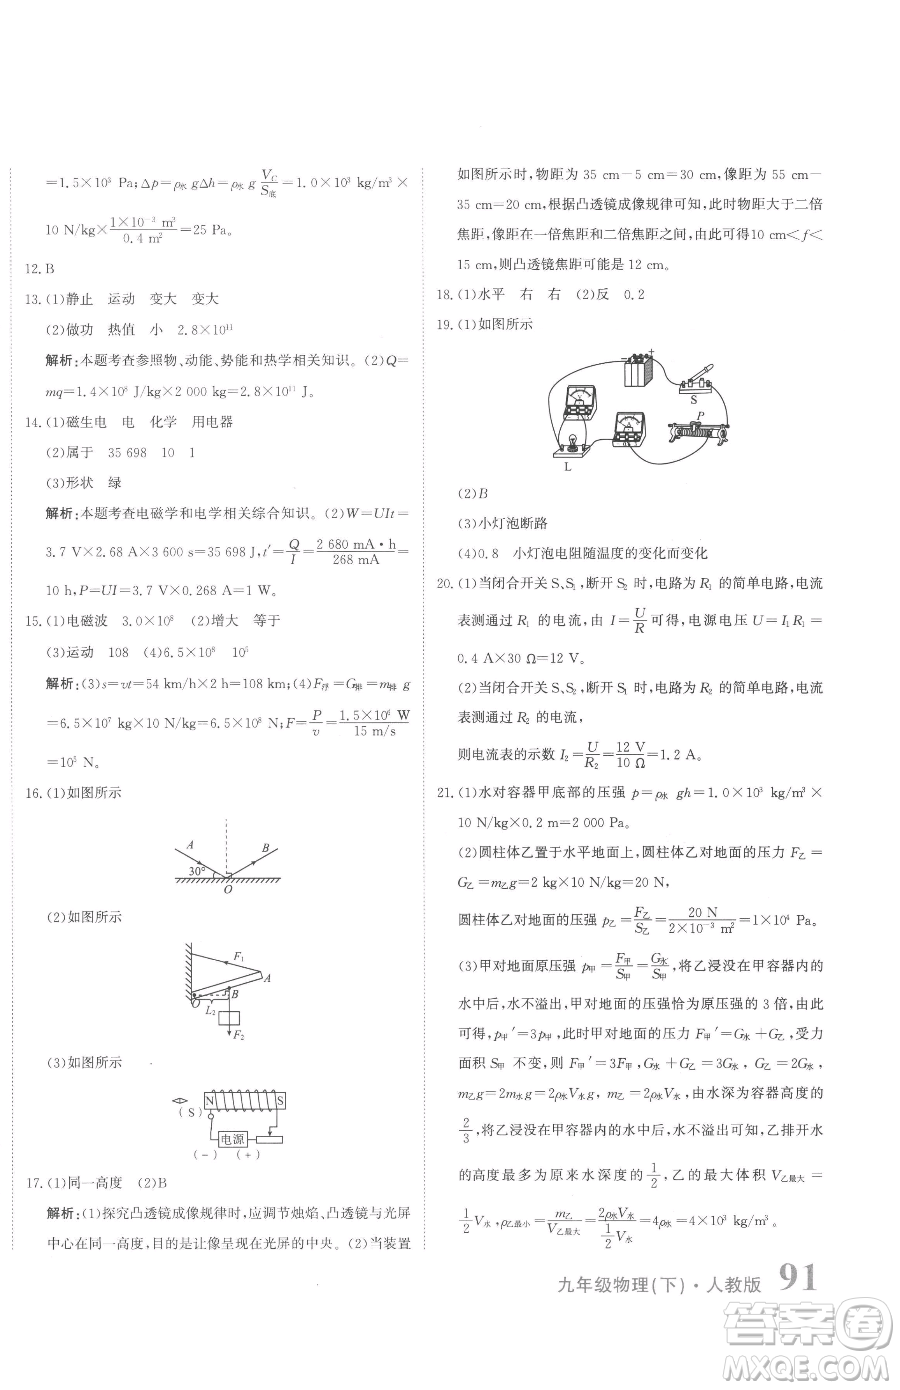 =1.5×10³ Pa;Δp=ρ水 gΔh=ρ水 g V_C/S底=1.0×10³ kg/m³×
10 N/kg×(1×10⁻³ m³)/(0.4 m²)=25 Pa。
12.B
13.(1)静止 运动 变大 变大
(2)做功 热值 小 2.8×10¹¹
解析:本题考查参照物、动能、势能和热学相关知识。(2)Q=
mq=1.4×10⁸ J/kg×2 000 kg=2.8×10¹¹ J。
14.(1)磁生电 电 化学 用电器
(2)属于 35 698 10 1
(3)形状 绿
解析:本题考查电磁学和电学相关综合知识。(2)W=UIt=
3.7 V×2.68 A×3 600 s=35 698 J,t′=Q/I=(2 680 mA·h)/(268 mA)=
10 h,P=UI=3.7 V×0.268 A=1 W。
15.(1)电磁波 3.0×10⁸ (2)增大 等于
(3)运动 108 (4)6.5×10⁸ 10⁵
解析:(3)s=vt=54 km/h×2 h=108 km;(4)F浮=G排=m排 g
=6.5×10⁷ kg×10 N/kg=6.5×10⁸ N;F=P/v=(1.5×10⁶ W)/(15 m/s)
=10⁵ N。
16.(1)如图所示
A B
30°
O
(2)如图所示
F₁
A
B
O
L₂
F₂
(3)如图所示
N S
(S)
电源
(-) (+)
17.(1)同一高度 (2)B
解析:(1)探究凸透镜成像规律时,应调节烛焰、凸透镜与光屏
中心在同一高度,目的是让像呈现在光屏的中央。(2)当装置
如图所示时,物距为 35 cm-5 cm=30 cm,像距为 55 cm-
35 cm=20 cm,根据凸透镜成像规律可知,此时物距大于二倍
焦距,像距在一倍焦距和二倍焦距之间,可得10 cm<f<
15 cm,则凸透镜焦距可能是 12 cm。
18.(1)水平 右 右 (2)反 0.2
19.(1)如图所示
- +
S
V
A
P
L
(2)B
(3)小灯泡断路
(4)0.8 小灯泡电阻随温度的变化而变化
20.(1)当闭合开关 S、S₁,断开 S₂ 时,电路为 R₁ 的简单电路,电流
表测通过 R₁ 的电流,由 I=U/R 可得,电源电压 U=I₁R₁=
0.4 A×30 Ω=12 V。
(2)当闭合开关 S、S₂,断开 S₁ 时,电路为 R₂ 的简单电路,电流
表测通过 R₂ 的电流,
则电流表的示数 I₂=U/R₂=(12 V)/(10 Ω)=1.2 A。
21.(1)水对容器甲底部的压强 p=ρ水 gh=1.0×10³ kg/m³×
10 N/kg×0.2 m=2 000 Pa。
(2)圆柱体乙置于水平地面上,圆柱体乙对地面的压力 F乙=
G乙=m乙g=2 kg×10 N/kg=20 N,
圆柱体乙对地面的压强 p乙=F乙/S乙=(20 N)/(2×10⁻³ m²)=1×10⁴ Pa。
(3)甲对地面原压强 p甲=F甲/S甲=G水/S甲,将乙浸没在甲容器内的
水中后,水不溢出,甲对地面的压强恰为原压强的 3 倍,由此
可得,p甲′=3p甲,此时甲对地面的压力 F甲′=G水+G乙,受力
面积 S甲 不变,则 F甲′=3F甲=3G水=G水+G乙,G乙=2G水,
m乙g=2m水g=2ρ水V水g,m乙=2ρ水V水,由水深为容器高度的
2/3,乙浸没在甲容器的水中时,水不溢出,水面最多升高至水
的高度的 1/2,乙的体积 V乙最大=
1/2 V水,ρ乙最小=m乙/V乙最大=2ρ水V水/(1/2 V水)=4ρ水=4×10³ kg/m³。
九年级物理(下)·人教版 91
答案圈
MXQE.COM